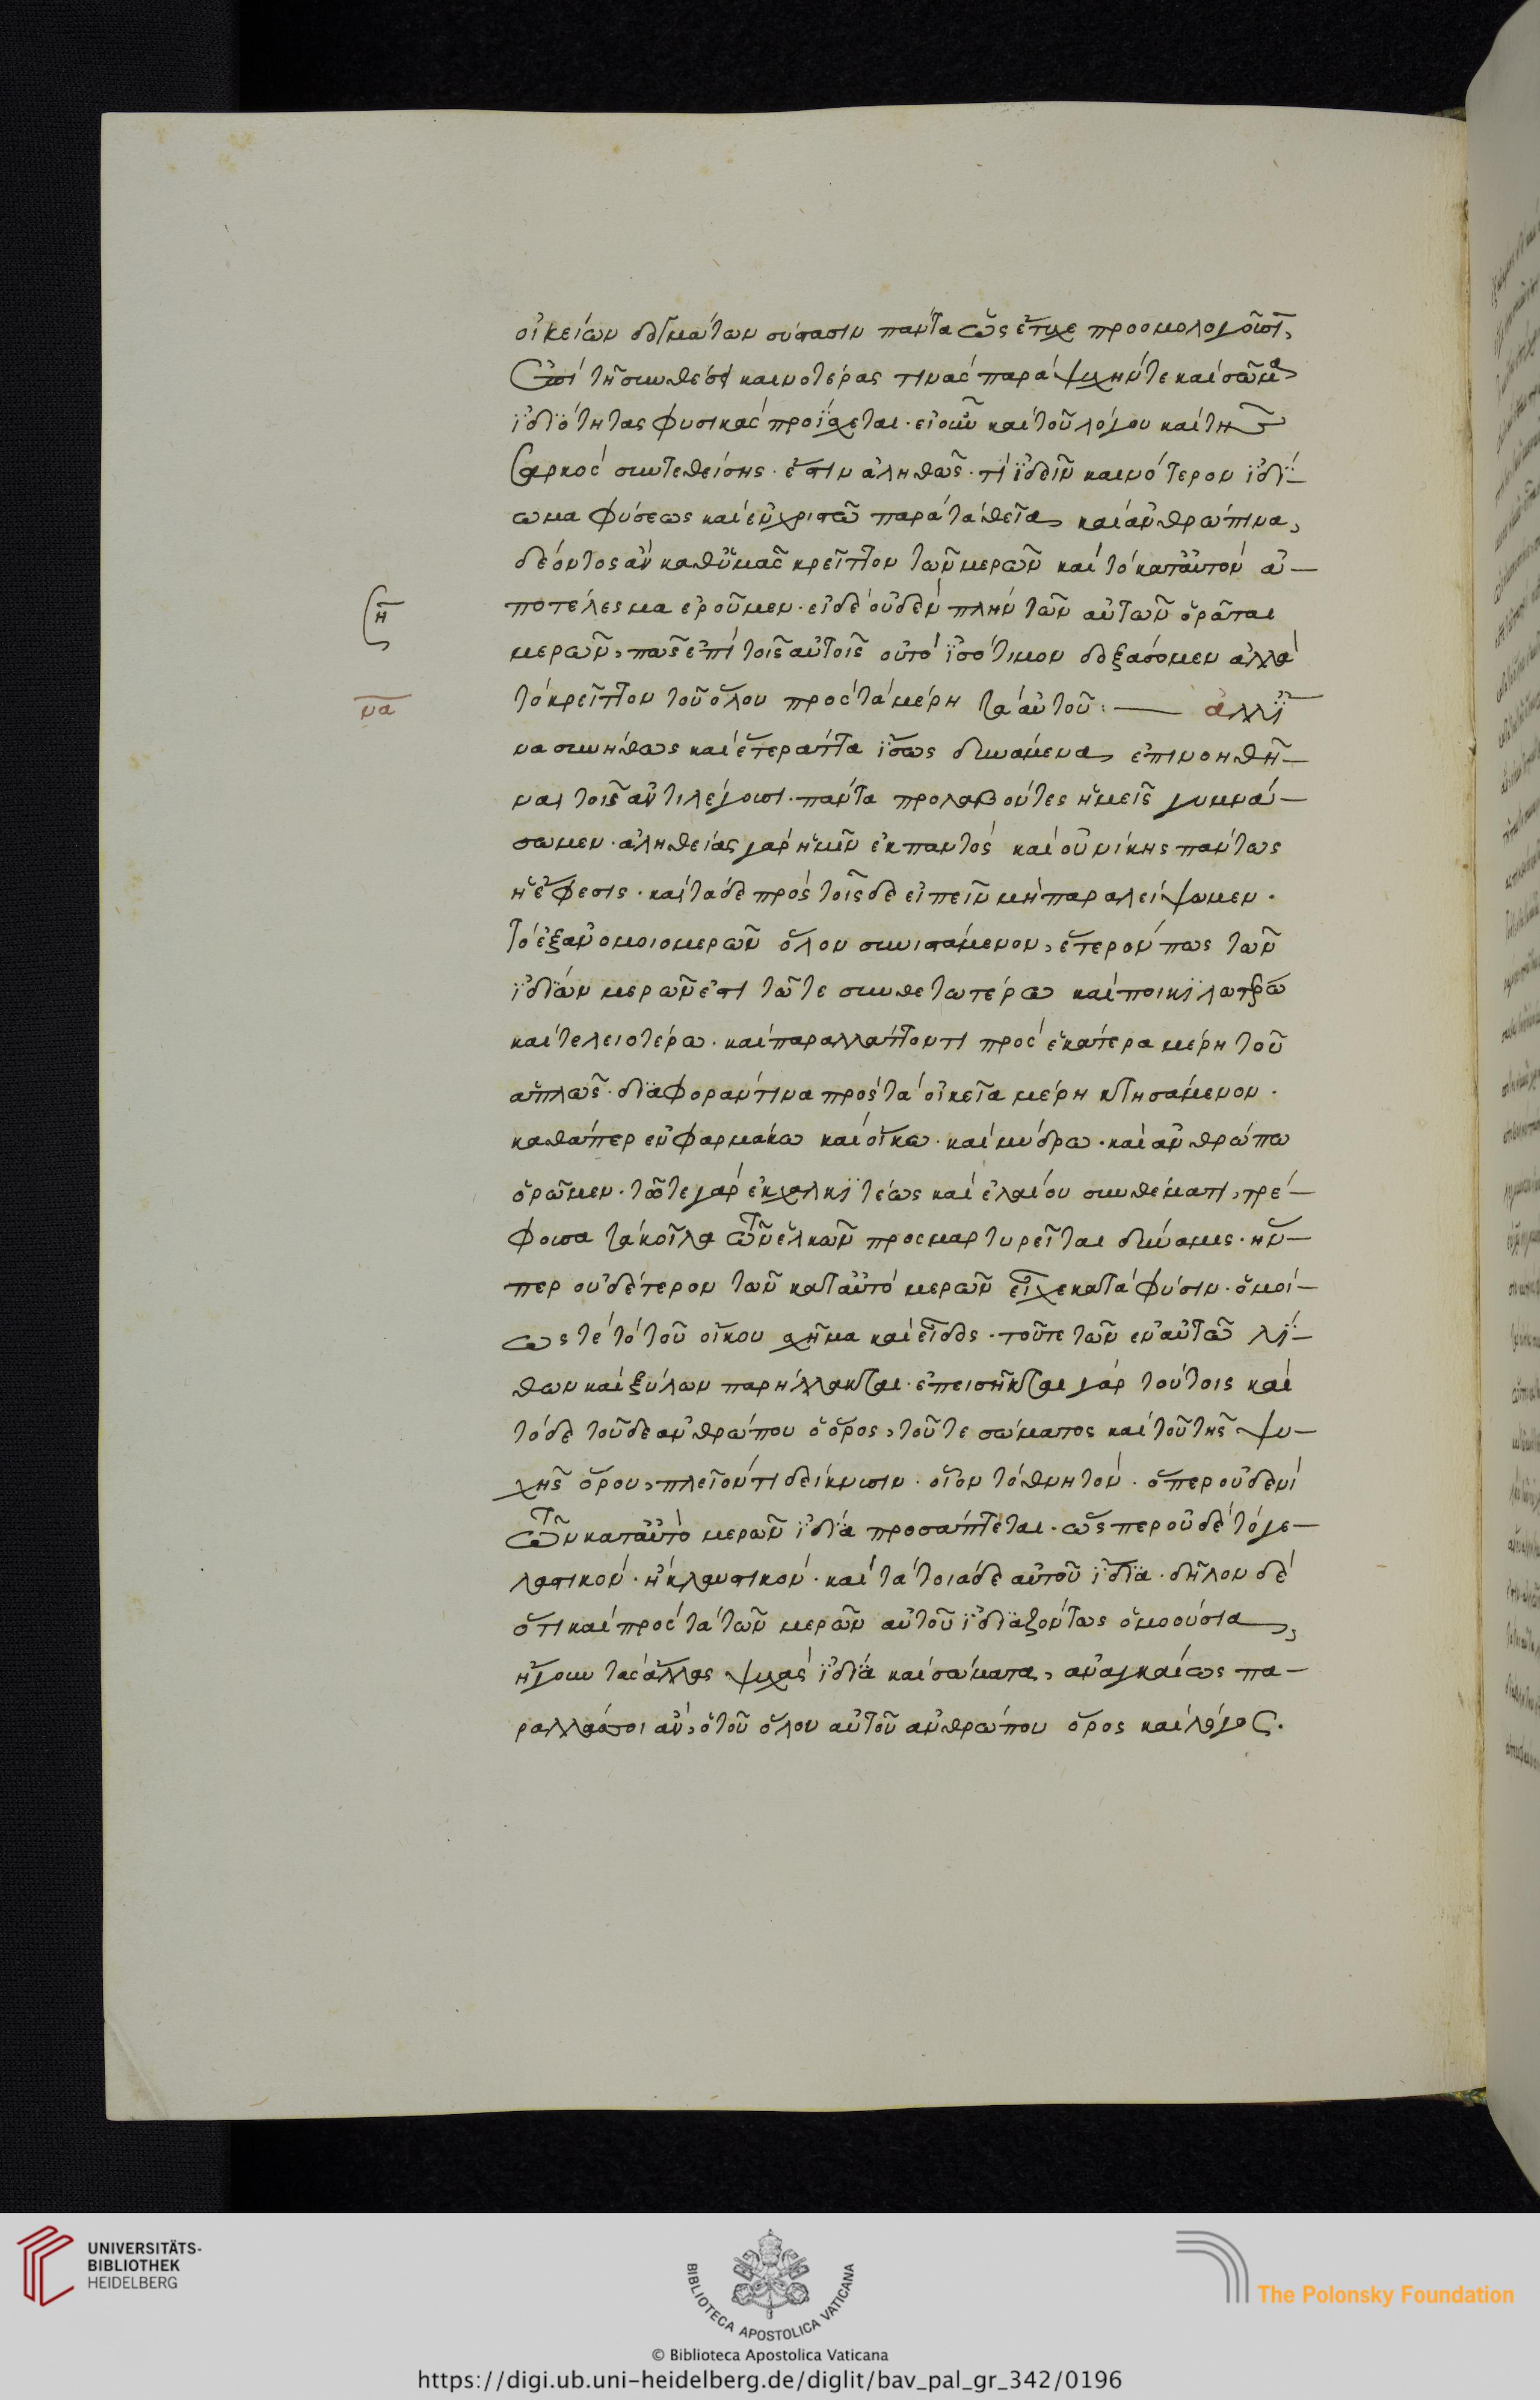 οἰκείων δογμάτων σύστασιν πάντα ὡς ἔτυχε προομολογοῦσι,
ἐπὶ τῇ συνθέσει καινοτέρας τινὰς παρὰ ψυχήν τε καὶ σῶμα
ἰδιότητας φυσικὰς προΐσχεται· εἰ οὖν καὶ τοῦ λόγου καὶ τῆς
σαρκὸς συντεθείσης· ἔστιν ἀληθῶς· τί ἰδεῖν καινότερον ἰδί-
ωμα φύσεως καὶ ἐν χριστῶ παρὰ τὰ θεῖα καὶ ἀνθρώπινα,
δεόντως ἂν καθ' ὑμᾶς κρεῖττον τῶν μερῶν καὶ τὸ κατ' αὐτὸν ἀ-
ποτέλεσμα ἐροῦμεν· εἰ δὲ οὐδὲν πλὴν τῶν αὐτῶν ὁρᾶται
μερῶν, πῶς ἐπὶ τοῖς αὐτοῖς οὐ τὸ ἰσότιμον δοξάσομεν ἀλλὰ
τὸ κρεῖττον τοῦ ὅλου πρὸς τὰ μέρη τὰ αὐτοῦ: — ἀλλ' ἵ
να συνήθως καὶ ἕτερα ἄττα ἴσως δυνάμενα ἐπινοηθῆ-
ναι τοῖς ἀντιλέγουσι· πάντα προλαβόντες ἡμεῖς γυμνά-
σωμεν· ἀληθείας γὰρ ἡμῖν ἐκ παντὸς καὶ οὐ νίκης πάντως
ἡ ἔφεσις· καὶ τάδε πρὸς τοῖσδε εἰπεῖν μὴ παραλείψωμεν·
τὸ ἐξ ἀνομοιομερῶν ὅλον συνιστάμενον, ἕτερόν πως τῶν
ἰδίων μερῶν ἐστι τῶ τε συνθετωτέρω καὶ ποικιλωτέρω
καὶ τελειοτέρω· καὶ παραλλάττοντι πρὸς ἑκάτερα μέρη τοῦ
ἁπλῶς· διαφοράν τινα πρὸς τὰ οἰκεῖα μέρη κτησάμενον·
καθάπερ ἐν φαρμάκω καὶ οἴκω· καὶ μύδρω· καὶ ἀνθρώπω
ὁρῶμεν· τῶ τε γὰρ ἐκ χαλκίτεως καὶ ἐλαίου συνθέματι, τρέ-
φουσα τὰ κοῖλα τῶν ἑλκῶν προσμαρτυρεῖται δύναμις· ἥν-
περ οὐδέτερον τῶν κατ' αὐτὸ μερῶν εἶχε κατὰ φύσιν· ὁμοί-
ως τὲ τὸ τοῦ οἴκου σχῆμα καὶ εἶδος· τοῦτε τῶν ἐν αὐτῶ λί-
θων καὶ ξύλων παρήλλακται· ἐπεισῆκται γὰρ τούτοις καὶ
τόδε τοῦδε ἀνθρώπου ὁ ὅρος, τοῦ τε σώματος καὶ τοῦ τῆς ψυ-
χῆς ὅρου, πλεῖόν τι δείκνυσιν· οἷον τὸ θνητόν· ὅπερ οὐδενὶ
τῶν κατ' αὐτὸ μερῶν ἰδία προσάπτεται· ὥσπερ οὐδὲ τὸ γε-
λαστικόν· ἢ κλαυστικόν· καὶ τὰ τοιάδε αὐτοῦ ἴδια· δῆλον δὲ
ὅτι καὶ πρὸς τὰ τῶν μερῶν αὐτοῦ ἰδιαζόντως ὁμοούσια,
ἤγουν τὰς ἄλλας ψυχὰς ἰδία καὶ σώματα, ἀναγκαίως πα-
ραλλάσσοι ἂν, ὁ τοῦ ὅλου αὐτοῦ ἀνθρώπου ὅρος καὶ λόγος.
η
να
UNIVERSITÄTS-
BIBLIOTHEK
HEIDELBERG
BIBLIOTECA APOSTOLICA VATICANA
The Polonsky Foundation
© Biblioteca Apostolica Vaticana
https://digi.ub.uni-heidelberg.de/diglit/bav_pal_gr_342/0196